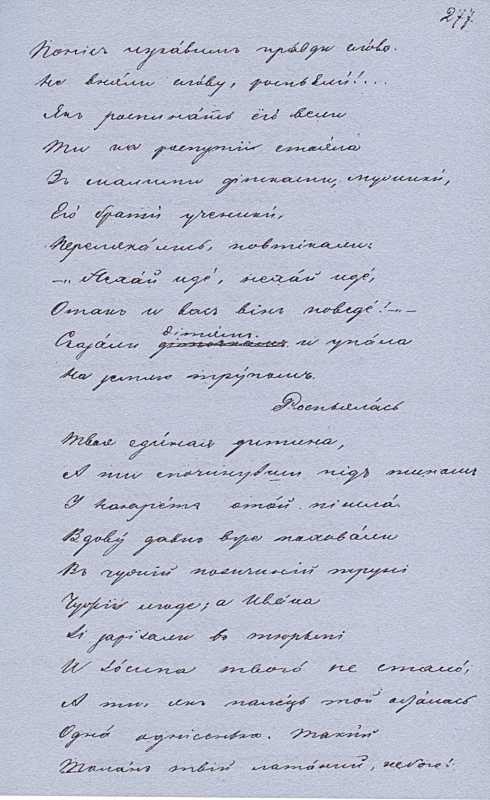 277.
Понісъ лукавымъ правды слово.
Не вняли слову, роспьяли!...
Якъ роспинать ёго вели
Ти на роспуттіи стояла
Зъ малыми дітками, мужики,
Ёго браты ученики,
Перелякались, повтікали:
— Нехай иде, нехай иде,
Отакъ и васъ вінъ поведе! —
Сказала дітямъ. и упала
На землю трупомъ.
Роспьялась
Твоя едыная дитина,
А ти спочинувши підъ тиномъ
У Назаретъ отой пішла.
Вдову давно вже поховали
Въ чужій позичиній труні
Чужіи люде; а Ивана
Ёі зарізали въ тюрьмі
И Іосипа твого не стало,
А ти, якъ палець той осталась
Одна однісенька. Такій
Таланъ твій латаний, небого!